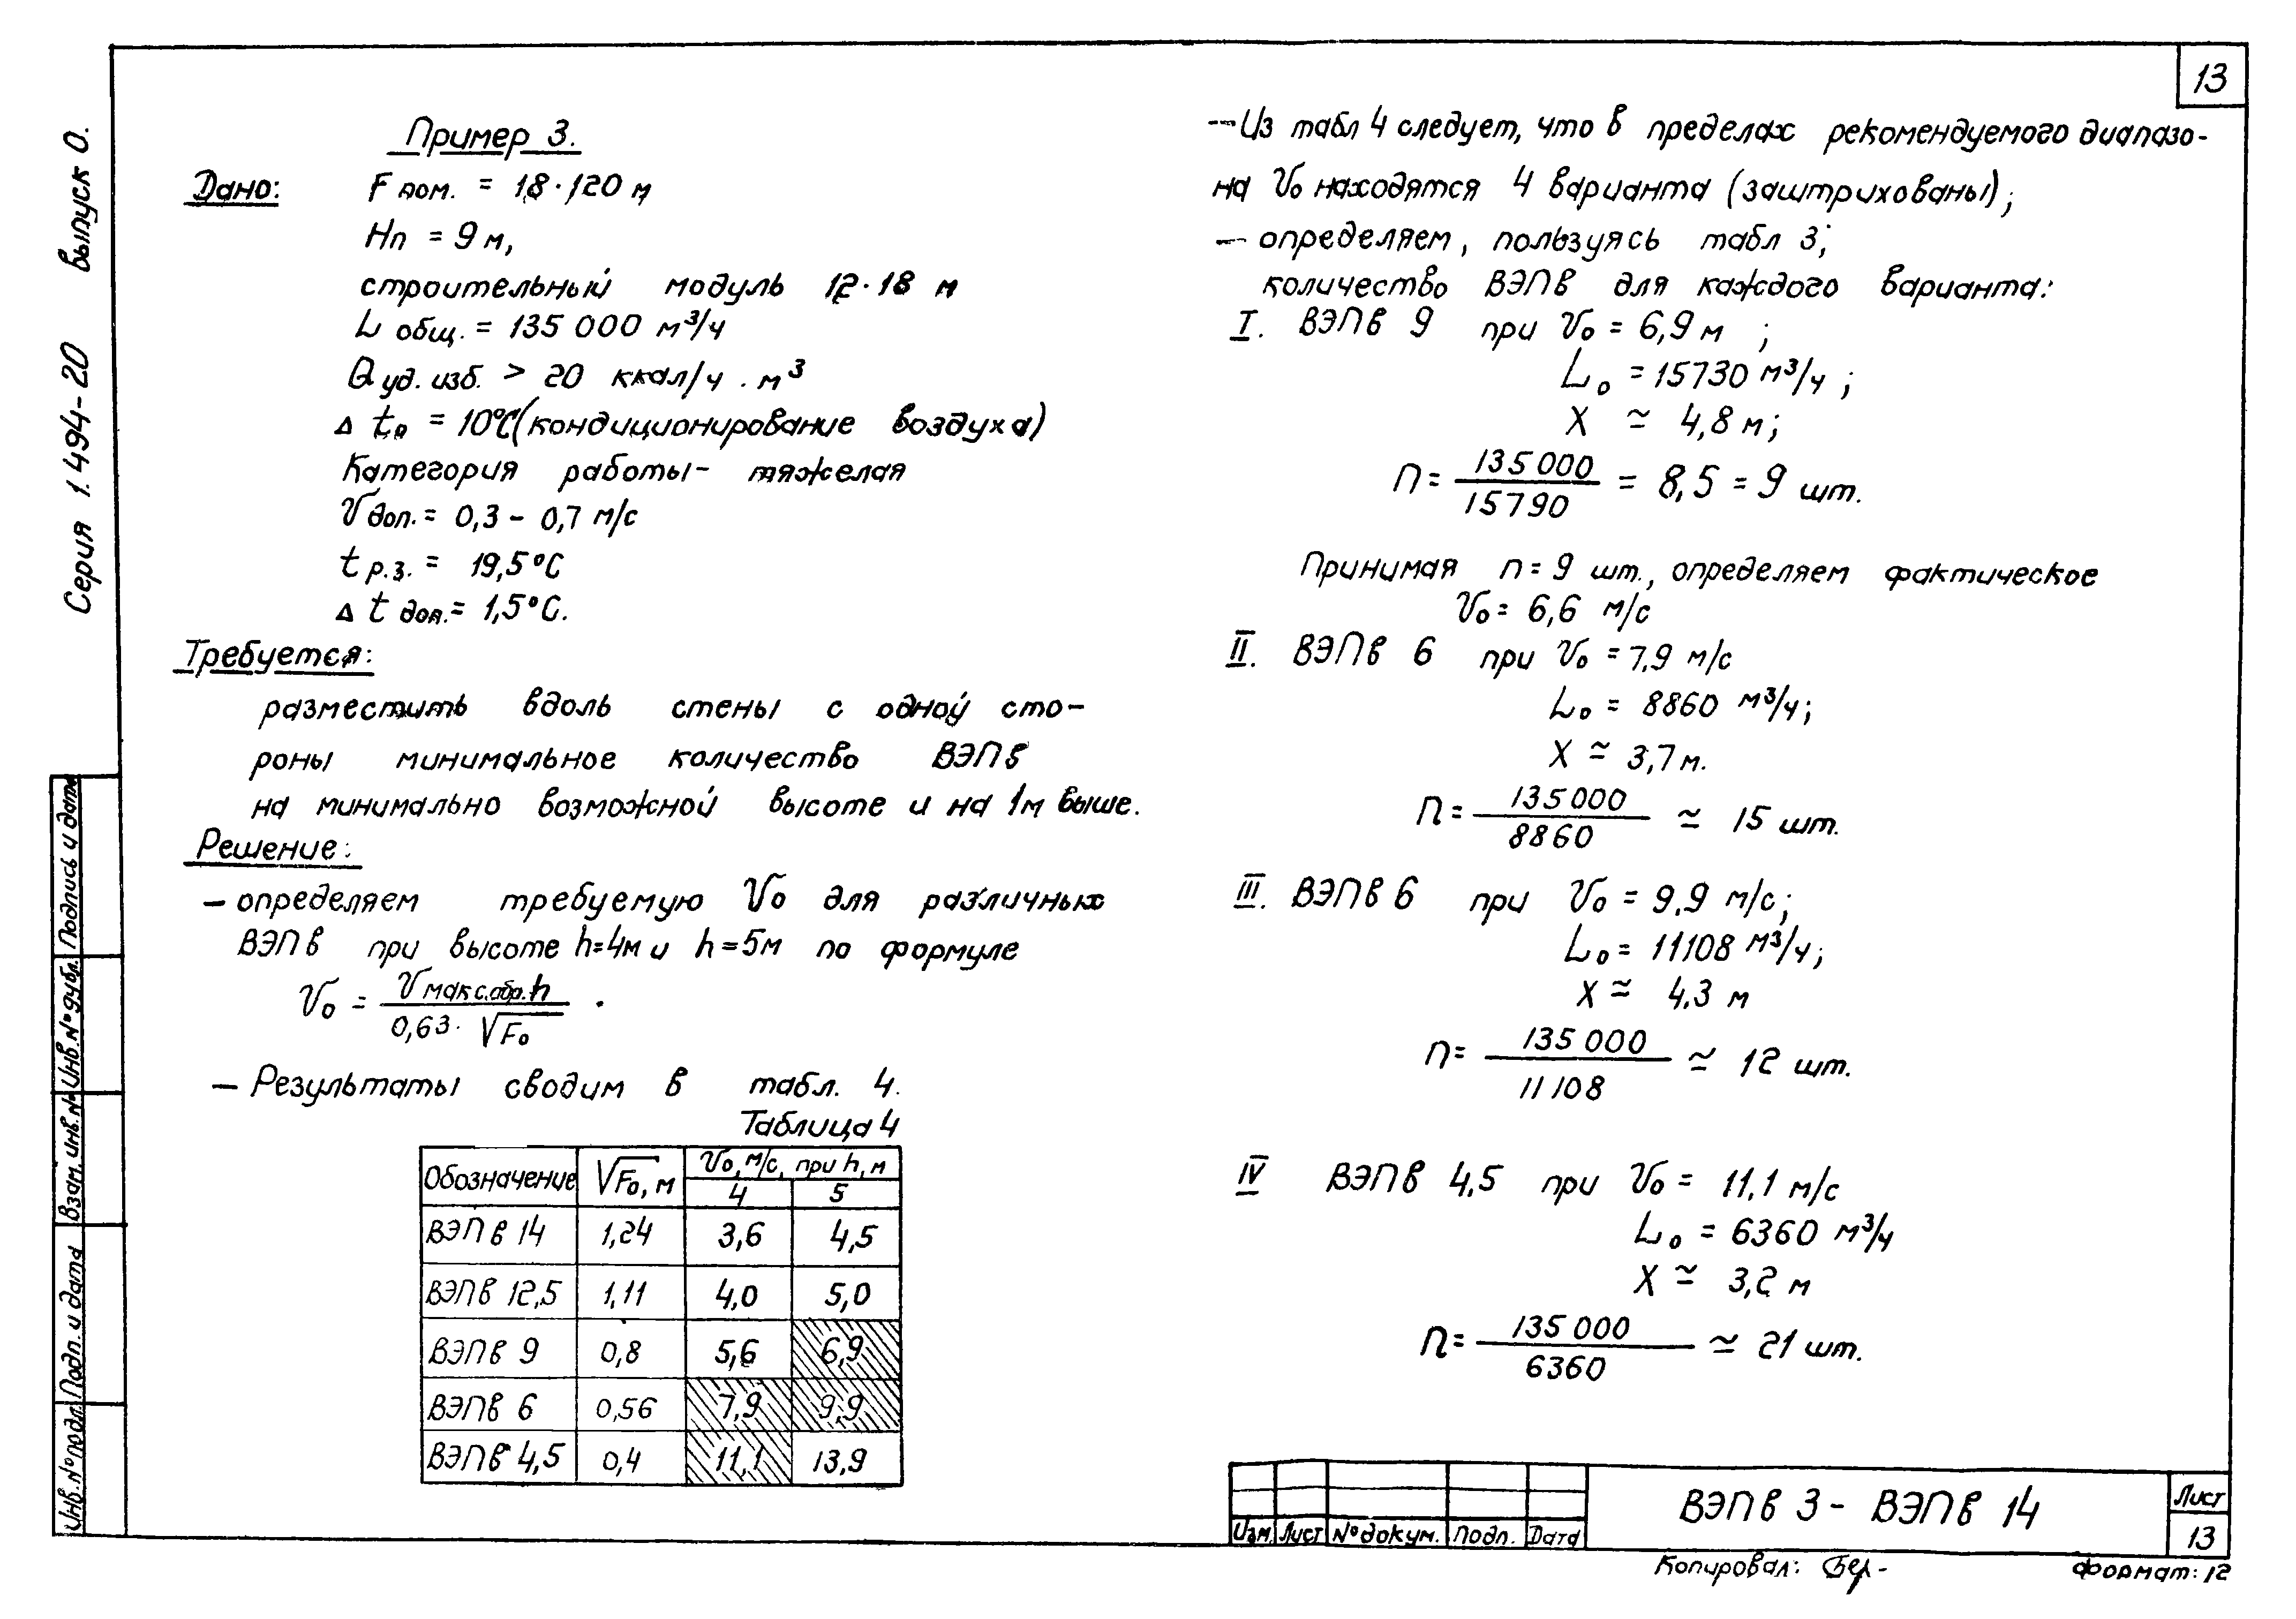 13
Серия 1.494-20 выпуск 0.
Пример 3.
Дано: F пом. = 18·120 м
Нп = 9 м,
строительный модуль 12·18 м
L общ. = 135 000 м³/ч
Q уд. изб. > 20 ккал/ч . м³
Δ t₀ = 10°С (кондиционирование воздуха)
Категория работы - тяжелая
V доп. = 0,3 - 0,7 м/с
t р.з. = 19,5°С
Δ t доп. = 1,5°С.
Требуется:
разместить вдоль стены с одной сто-
роны минимальное количество ВЭПв
на минимально возможной высоте и на 1м выше.
Решение:
- определяем требуемую V₀ для различных
ВЭПв при высоте h=4м и h=5м по формуле
V₀ = V макс.обр. h / 0,63 · √F₀ .
- Результаты сводим в табл. 4.
Таблица 4
Обозначение √F₀, м V₀, м/с, при h, м
4 5
ВЭПв 14 1,24 3,6 4,5
ВЭПв 12,5 1,11 4,0 5,0
ВЭПв 9 0,8 5,6 6,9
ВЭПв 6 0,56 7,9 9,9
ВЭПв 4,5 0,4 11,1 13,9
- Из табл 4 следует, что в пределах рекомендуемого диапазо-
на V₀ находятся 4 варианта (заштрихованы);
- определяем, пользуясь табл 3;
количество ВЭПв для каждого варианта:
I. ВЭПв 9 при V₀ = 6,9 м ;
L₀ = 15730 м³/ч ;
X ≃ 4,8 м;
n = 135 000 / 15790 = 8,5 = 9 шт.
Принимая n = 9 шт., определяем фактическое
V₀ = 6,6 м/с
II. ВЭПв 6 при V₀ = 7,9 м/с
L₀ = 8860 м³/ч;
X ≃ 3,7 м.
n = 135 000 / 8860 ≃ 15 шт.
III. ВЭПв 6 при V₀ = 9,9 м/с;
L₀ = 11108 м³/ч;
X ≃ 4,3 м
n = 135 000 / 11108 ≃ 12 шт.
IV ВЭПв 4,5 при V₀ = 11,1 м/с
L₀ = 6360 м³/ч
X ≃ 3,2 м
n = 135 000 / 6360 ≃ 21 шт.
Инв.№подл. Подп. и дата Взам. инв.№ Инв.№дубл. Подпись и дата
Изм. Лист №докум. Подп. Дата
ВЭПв 3 - ВЭПв 14
Лист
13
Копировал:
Формат: 12